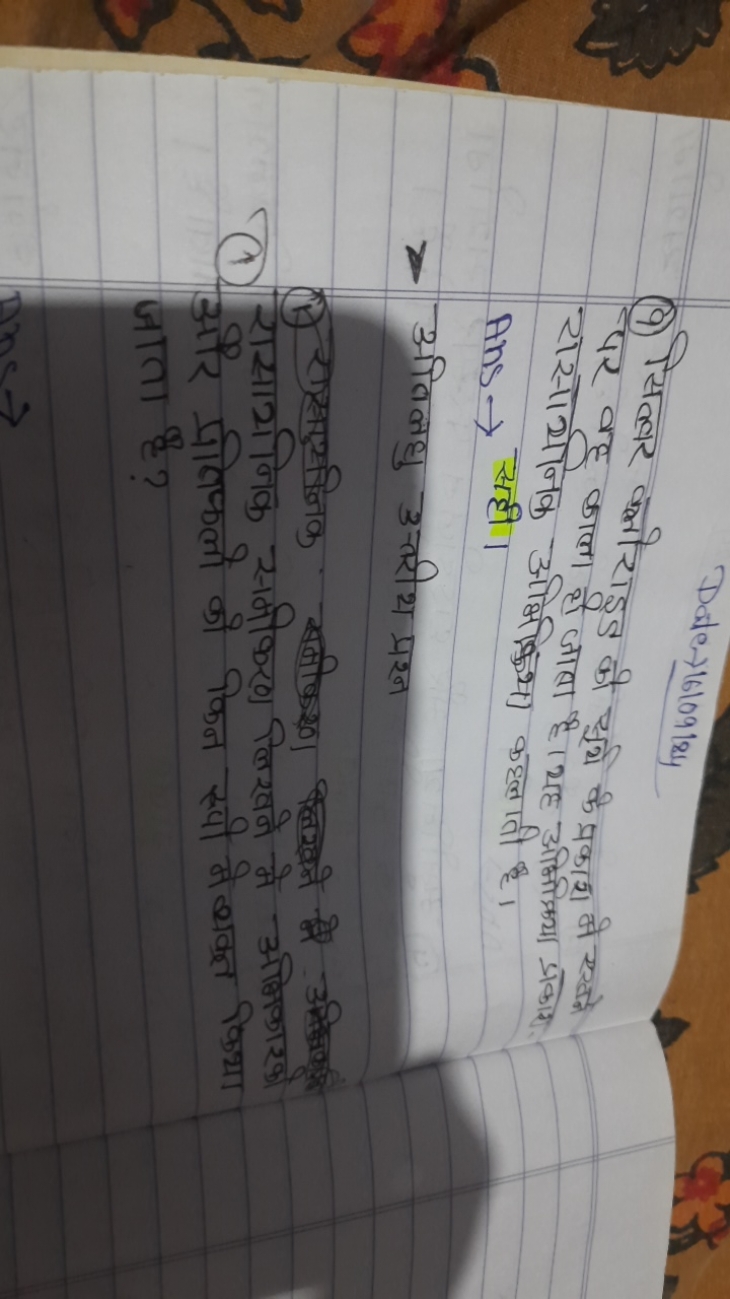 Date→16/09/24
(9) सिल्वर क्लोराइड को सूर्य के प्रकाश में रखने
पर वह काला हो जाता है। यह अभिक्रिया प्रकाश
रासायनिक अभिक्रिया कहलाती है।
Ans → सही।
➤ अतिलघु उत्तरीय प्रश्न
(1) रासायनिक समीकरण लिखने में अभिकारकों
और प्रतिफलों को किन रूपों में व्यक्त किया
जाता है?
Ans →